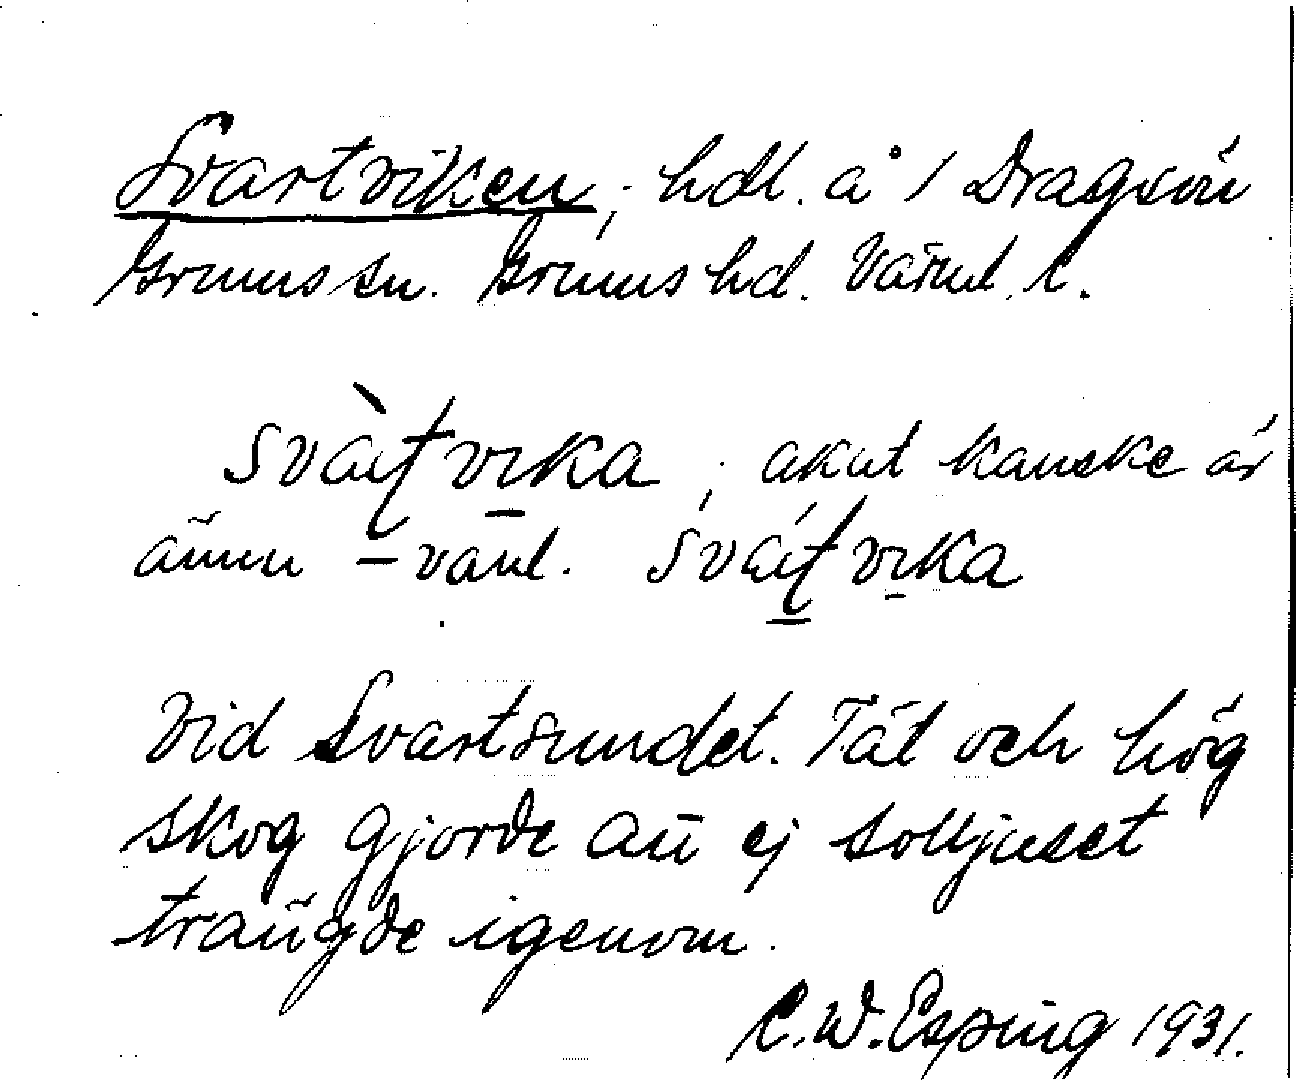 Svartviken; hdl. å 1 Dragsön
Grums sn. Grums hd. Värml. l.
svàt̠ vika; akut kanske är
ännu - vanl. svát̠ vika
Vid Svartsundet. Tät och hög
skog gjorde att ej solljuset
trängde igenom.
C. W. Esping 1931.